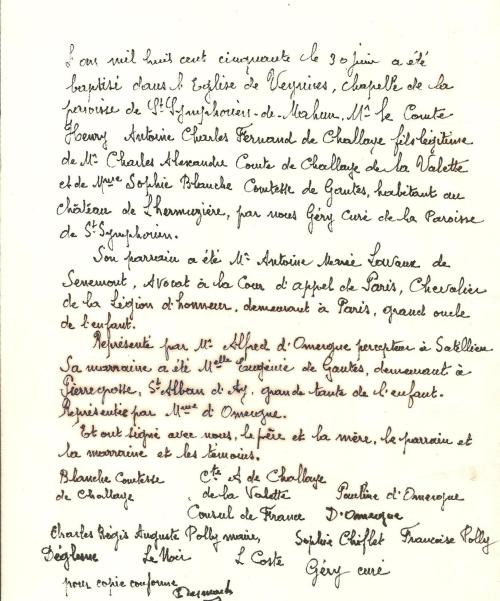 L'an mil huit cent cinquante le 30 juin a été
baptisé dans l'Eglise de Veyrines, chapelle de la
paroisse de St Symphorien-de-Mahun, Mr le Comte
Henry Antoine Charles Fernand de Challaye fils légitime
de Mr Charles Alexandre Comte de Challaye de la Valette
et de Mme Sophie Blanche Comtesse de Gantes, habitant au
château de Lhermuzière, par nous Géry curé de la Paroisse
de St Symphorien.
Son parrain a été Mr Antoine Marie Lavaux de
Senemont, Avocat à la Cour d'appel de Paris, Chevalier
de la Légion d'honneur, demeurant à Paris, grand oncle
de l'enfant.
Représenté par Mr Alfred d'Omergue percepteur à Satillieu
Sa marraine a été Melle Eugénie de Gantes, demeurant à
Pierregrosse, St Alban d'Ay, grande tante de l'enfant.
Représentée par Mme d'Omergue.
Et ont signé avec nous, le père et la mère, le parrain et
la marraine et les témoins.
Blanche Comtesse Cte A de Challaye
de Challaye de la Valette Pauline d'Omergue
Consul de France D'Omergue
Charles Régis Auguste Polly maire, Sophie Chifflet Françoise Polly
Déglesne Le Noir L Coste Géry curé
pour copie conforme